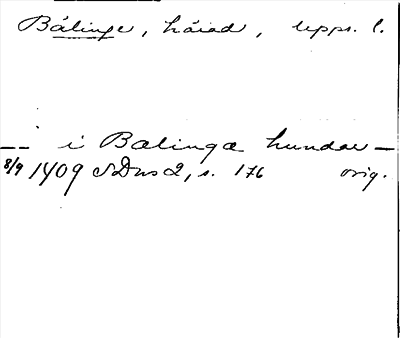 Bälinge, härad, Upps. l.
— i Bælinga hundar —
8/9 1409 SDns 2, s. 176 orig.